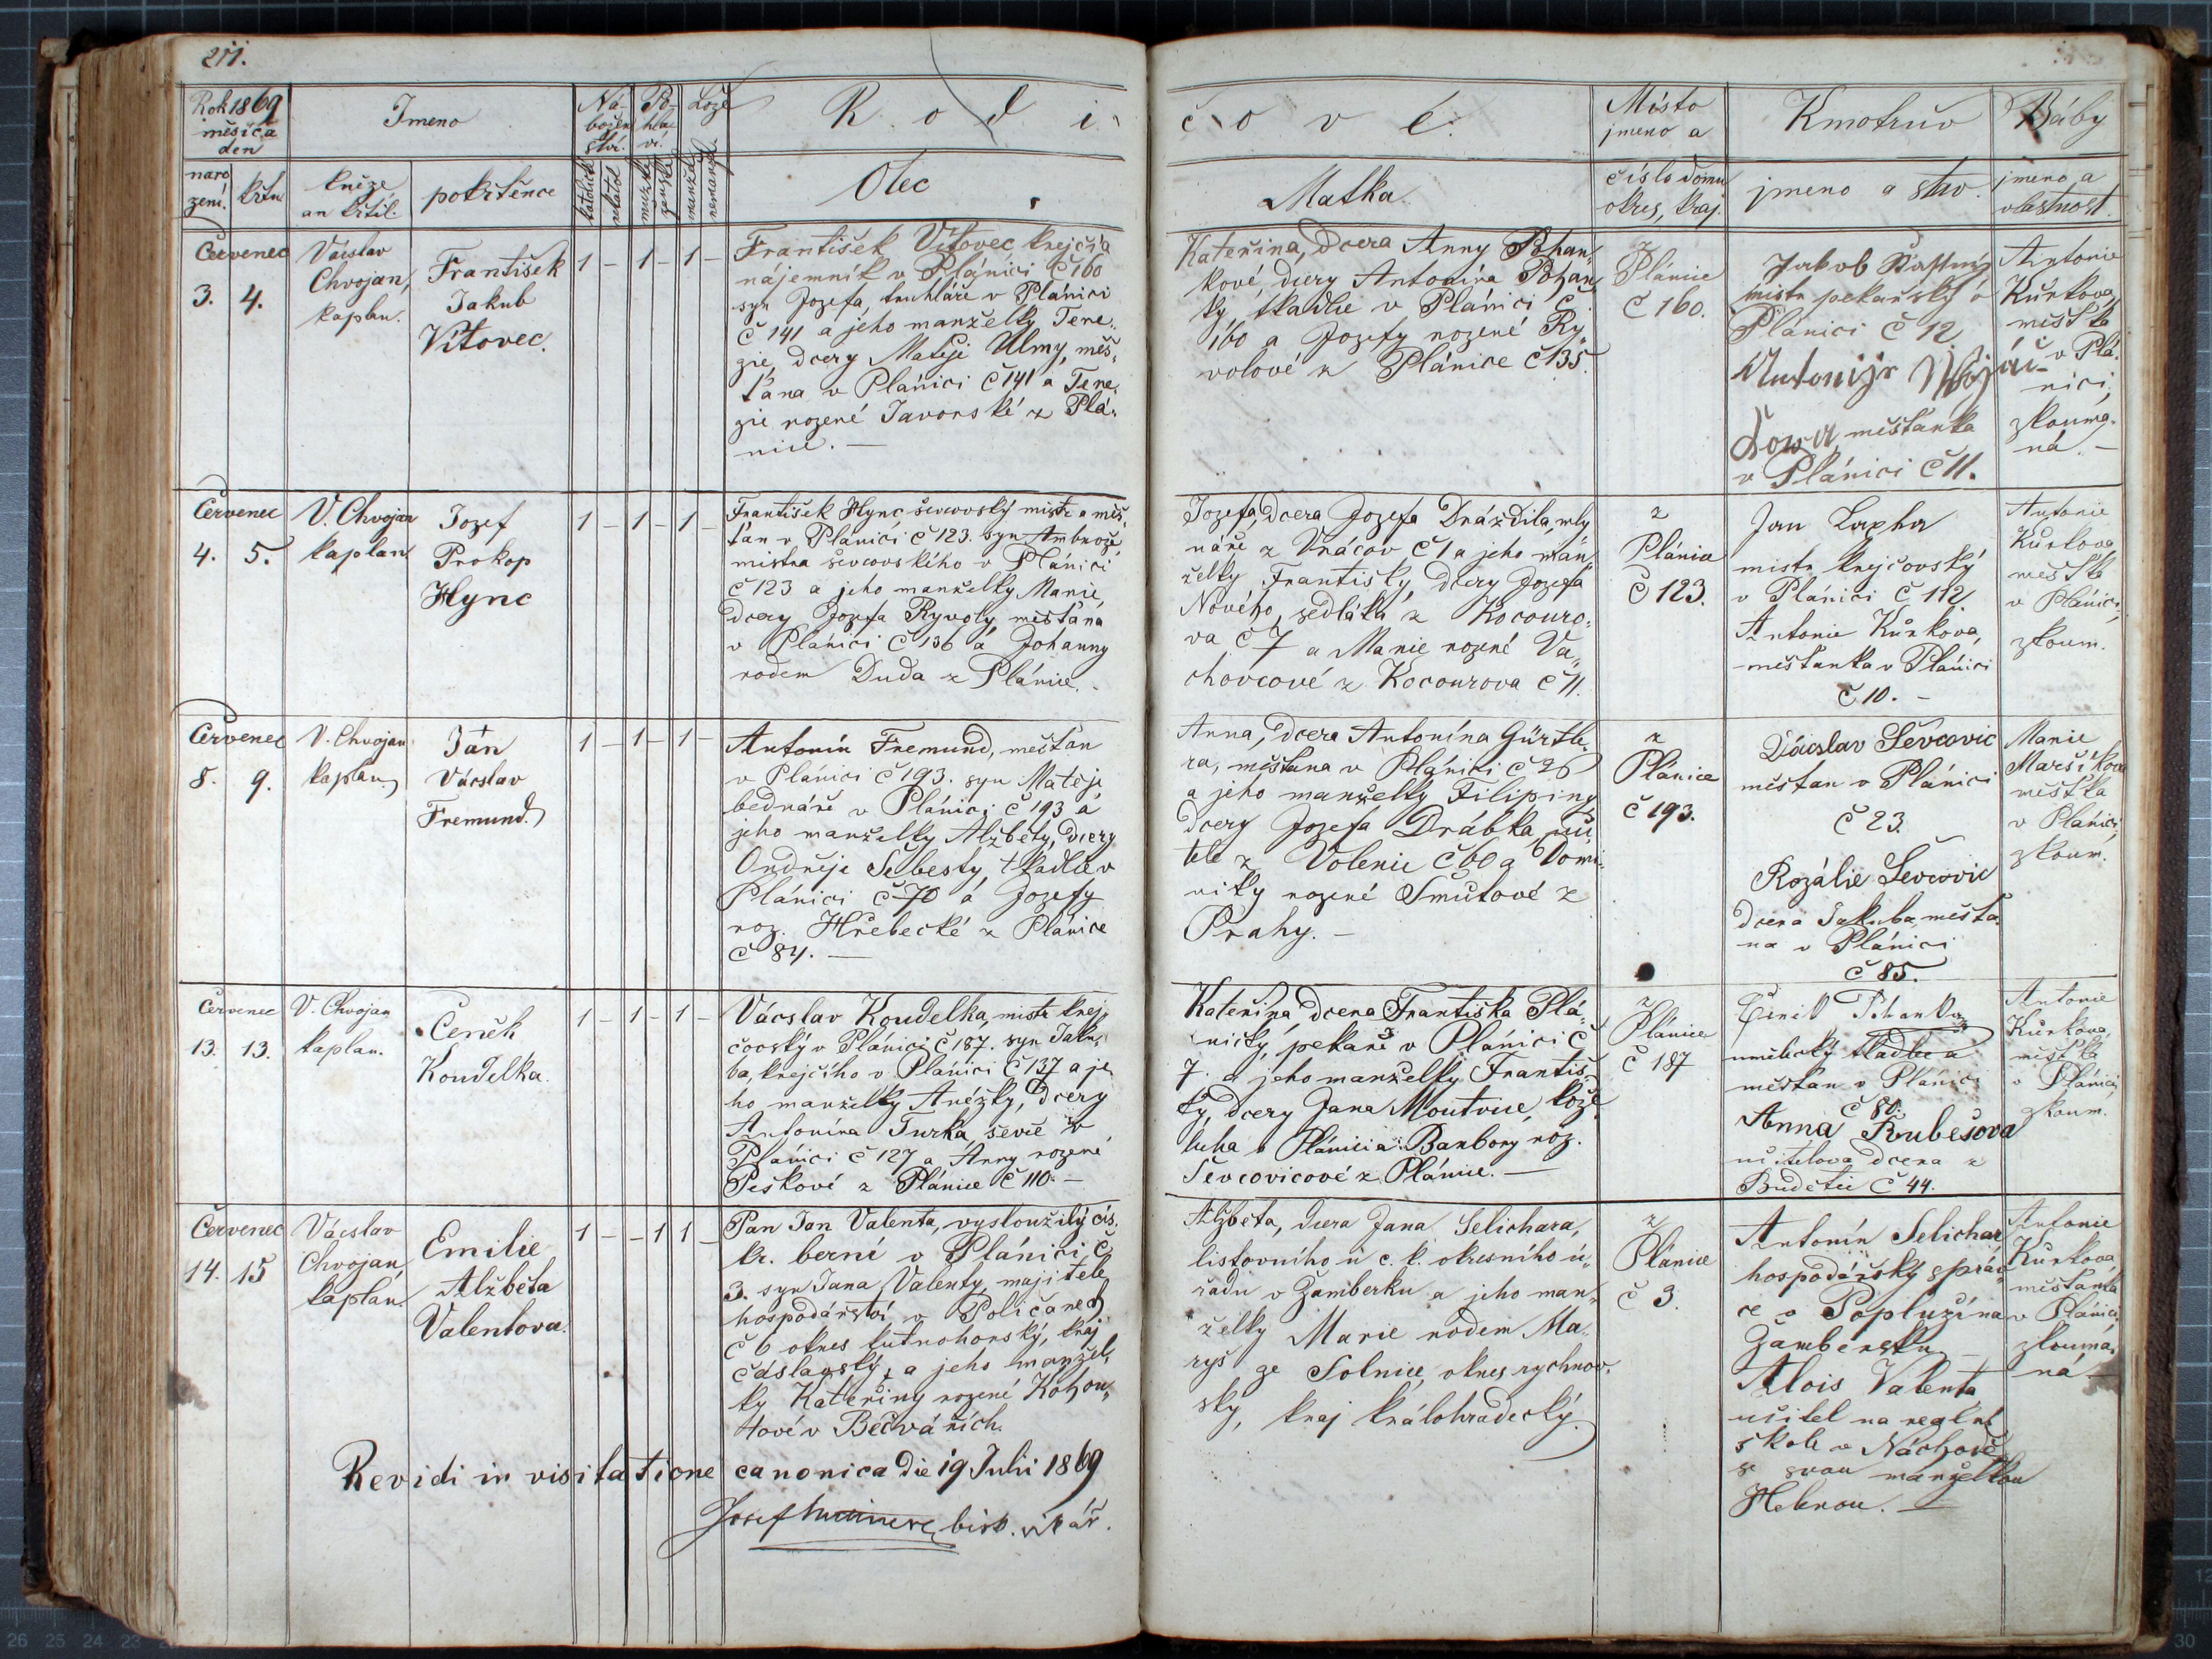 211.
Rok 1869
měsíc a
den
Jmeno
Ná-
božen
ství.
Po-
hla-
ví.
Lože
R o d i
č o v é.
Místo
jmeno a
Kmotrův
Báby
naro
zení.
křtu
kněze
an křtil.
pokřtěnce
katolické
mužské
ženské
manželské
nemanžel.
Otec
Matka.
číslo domu
okres, kraj.
jmeno a stav.
jmeno a
vlastnost.
Červenec
3. 4.
Vácslav
Chvojan,
kaplan.
František
Jakub
Vítovec.
1 – 1 – 1 –
František Vítovec, krejčí a
nájemník v Plánici č 160
syn Jozefa, truhláře v Plánici
č 141 a jeho manželky Tere-
zie, dcery Matěje Ulmy, měš-
ťana v Plánici č 141 a Tere
zie rozené Javorské z Plá-
nice. —
Kateřina, dcera Anny Pohan-
kové, dcery Antonína Pohan
ky, tkadlce v Plánici č
160 a Jozefy rozené Ry
volové z Plánice č 135.
z
Plánice
č 160.
Jakob Šťastný
mistr pekařský v
Plánici č 12.
měšťanka
v Plánici č 11.
Antonie
Kůrkova,
měštka
v Plá-
nici,
zkouma-
ná. —
Červenec
4. 5.
V. Chvojan
kaplan
Jozef
Prokop
Hync
1 – 1 – 1 –
František Hync ševcovský mistr a měš-
ťan v Plánici č 123. syn Ambrože
mistra ševcovského v Plánici
č 123 a jeho manželky Marie,
dcery Jozefa Ryvoly, měšťana
v Plánici č 136 a Johanny
rodem Duda z Plánice.
Jozefa, dcera Jozefa Drázdila, mly
náře z Vrácov č 1 a jeho man
želky Františky, dcery Jozefa
Nového, sedláka z Kocouro-
va č 7 a Marie rozené Va-
chovcové z Kocourova č 11.
z
Plánice
č 123.
Jan Laxha
mistr krejčovský
v Plánici č 112.
Antonie Kůrkova,
měšťanka v Plánici
č 10. –
Antonie
Kůrkova,
měštka
v Plánici,
zkoum.
Červenec
8. 9.
V. Chvojan
kaplan
Ján
Vácslav
Fremund.
1 – 1 – 1 –
Antonín Fremund, měšťan
v Plánici č 193. syn Matěje
bednáře v Plánici č 193 a
jeho manželky Alžběty, dcery
Ondřeje Šebesty, tkadlce v
Plánici č 70 a Jozefy
roz. Hřebecké z Plánice
č 84. —
Anna, dcera Antonína Gürtle-
ra, měšťana v Plánici č 26
a jeho manželky Filipiny
dcery Jozefa Drábka, uči
tele z Volenic č 60 a Domi-
niky rozené Smutové z
Prahy. –
z
Plánice
č 193.
Vácslav Ševcovic
měšťan v Plánici
č 23.
Rozálie Ševcovic
dcera Jakuba, měšťa-
na v Plánici
č 85.
Marie
Maršíkova
měštka
v Plánici,
zkoum.
Červenec
13. 13.
V. Chvojan
kaplan.
Čeněk
Koudelka.
1 – 1 – 1 –
Vácslav Koudelka, mistr krej-
čovský v Plánici č 187. syn Jaku-
ba, krejčího v Plánici č 137 a je-
ho manželky Anežky, dcery
Antonína Turka, ševce v
Plánici č 127 a Anny rozené
Peškové z Plánice č 110. –
Kateřina, dcera Františka Plá-
ničky, pekaře v Plánici č
7. a jeho manželky Františ-
ky, dcery Jana Moutvice, kože
luha v Plánici a Barbory roz.
Ševcovicové z Plánice. —
z
Plánice
č 187
umělecký tkadlec a
měšťan v Plánici
č 80.
Anna Roubešova
učitelova dcera z
Budětic č 44.
Antonie
Kůrkova,
měštka
v Plánici,
zkoum.
Červenec
14. 15
Vácslav
Chvojan,
kaplan.
Emilie
Alžběta
Valentova.
1 – – 1 1 –
Pan Jan Valenta, vysloužilý cís.
kr. berní v Plánici č
3. syn Jana Valenty, majitele
hospodářství v Poličanech
č 6 okres kutnohorský, kraj
čáslavský, a jeho manžel-
ky Kateřiny rozené Kohou-
tové v Bečvářích.
Alžběta, dcera Jana Selichara,
listovního u c. k. okresního ú-
řadu v Žamberku a jeho man-
želky Marie rodem Ma-
ryš ze Solnice, okres rychnov-
ský, kraj králohradecký.
z
Plánice
č 3.
Antonín Selichar
hospodářský správ-
ce v Popluží na
Žambersku –
Alois Valenta
učitel na reální
škole v Náchodě
se svou manželkou
Helenou. —
Antonie
Kůrkova,
měšťanka
v Plánici,
zkouma-
ná. –
Revidi in visitatione canonica die 19 Julii 1869
Josef
bisk. vikář.